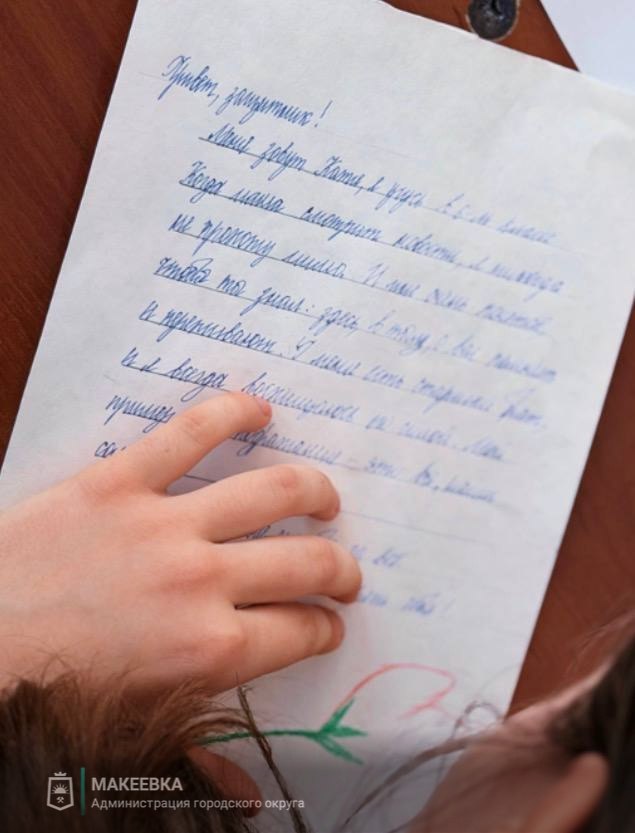 Привет, защитник!
Меня зовут Катя, я учусь в 6-м классе
Когда мама смотрит новости, я никогда
не прохожу мимо. И мне очень хочется
чтобы ты знал: здесь, в тылу, о вас помнят
и переживают. У меня есть старший брат,
и я всегда восхищаюсь его силой. Мои
пример подражания - это вы, наши
за все
тебя!
МАКЕЕВКА
Администрация городского округа